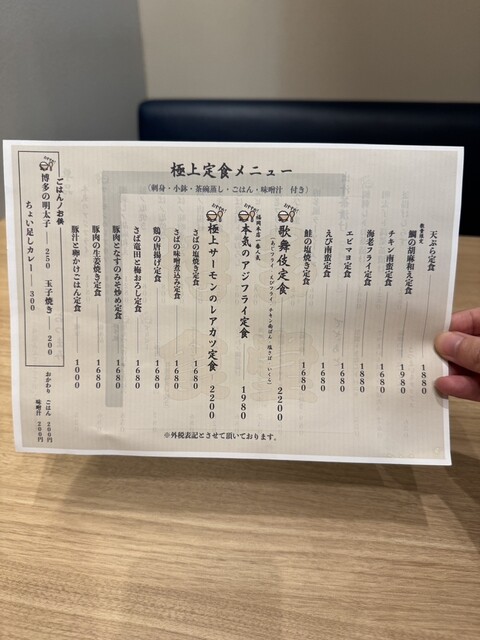 極上定食メニュー
（刺身・小鉢・茶碗蒸し・ごはん・味噌汁　付き）
天ぷら定食 1880
数量限定
鯛の胡麻和え定食 1980
チキン南蛮定食 1680
海老フライ定食 1880
エビマヨ定食 1680
えび南蛮定食 1680
鮭の塩焼き定食 1680
歌舞伎定食 2200
（あじフライ・えびフライ・チキン南ばん・塩さば・いくら）
福岡本店一番人気
本気のアジフライ定食 1980
極上サーモンのレアカツ定食 2200
さばの塩焼き定食 1680
さばの味噌煮込み定食 1680
鶏の唐揚げ定食 1680
さば竜田と梅おろし定食 1680
豚肉となすのみそ炒め定食 1680
豚肉の生姜焼き定食 1680
豚汁と卵かけごはん定食 1000
ごはんノお供
博多の明太子 250　玉子焼き 200
ちょい足しカレー 300
おかわり　ごはん　200円
味噌汁　200円
※外税表記とさせて頂いております。